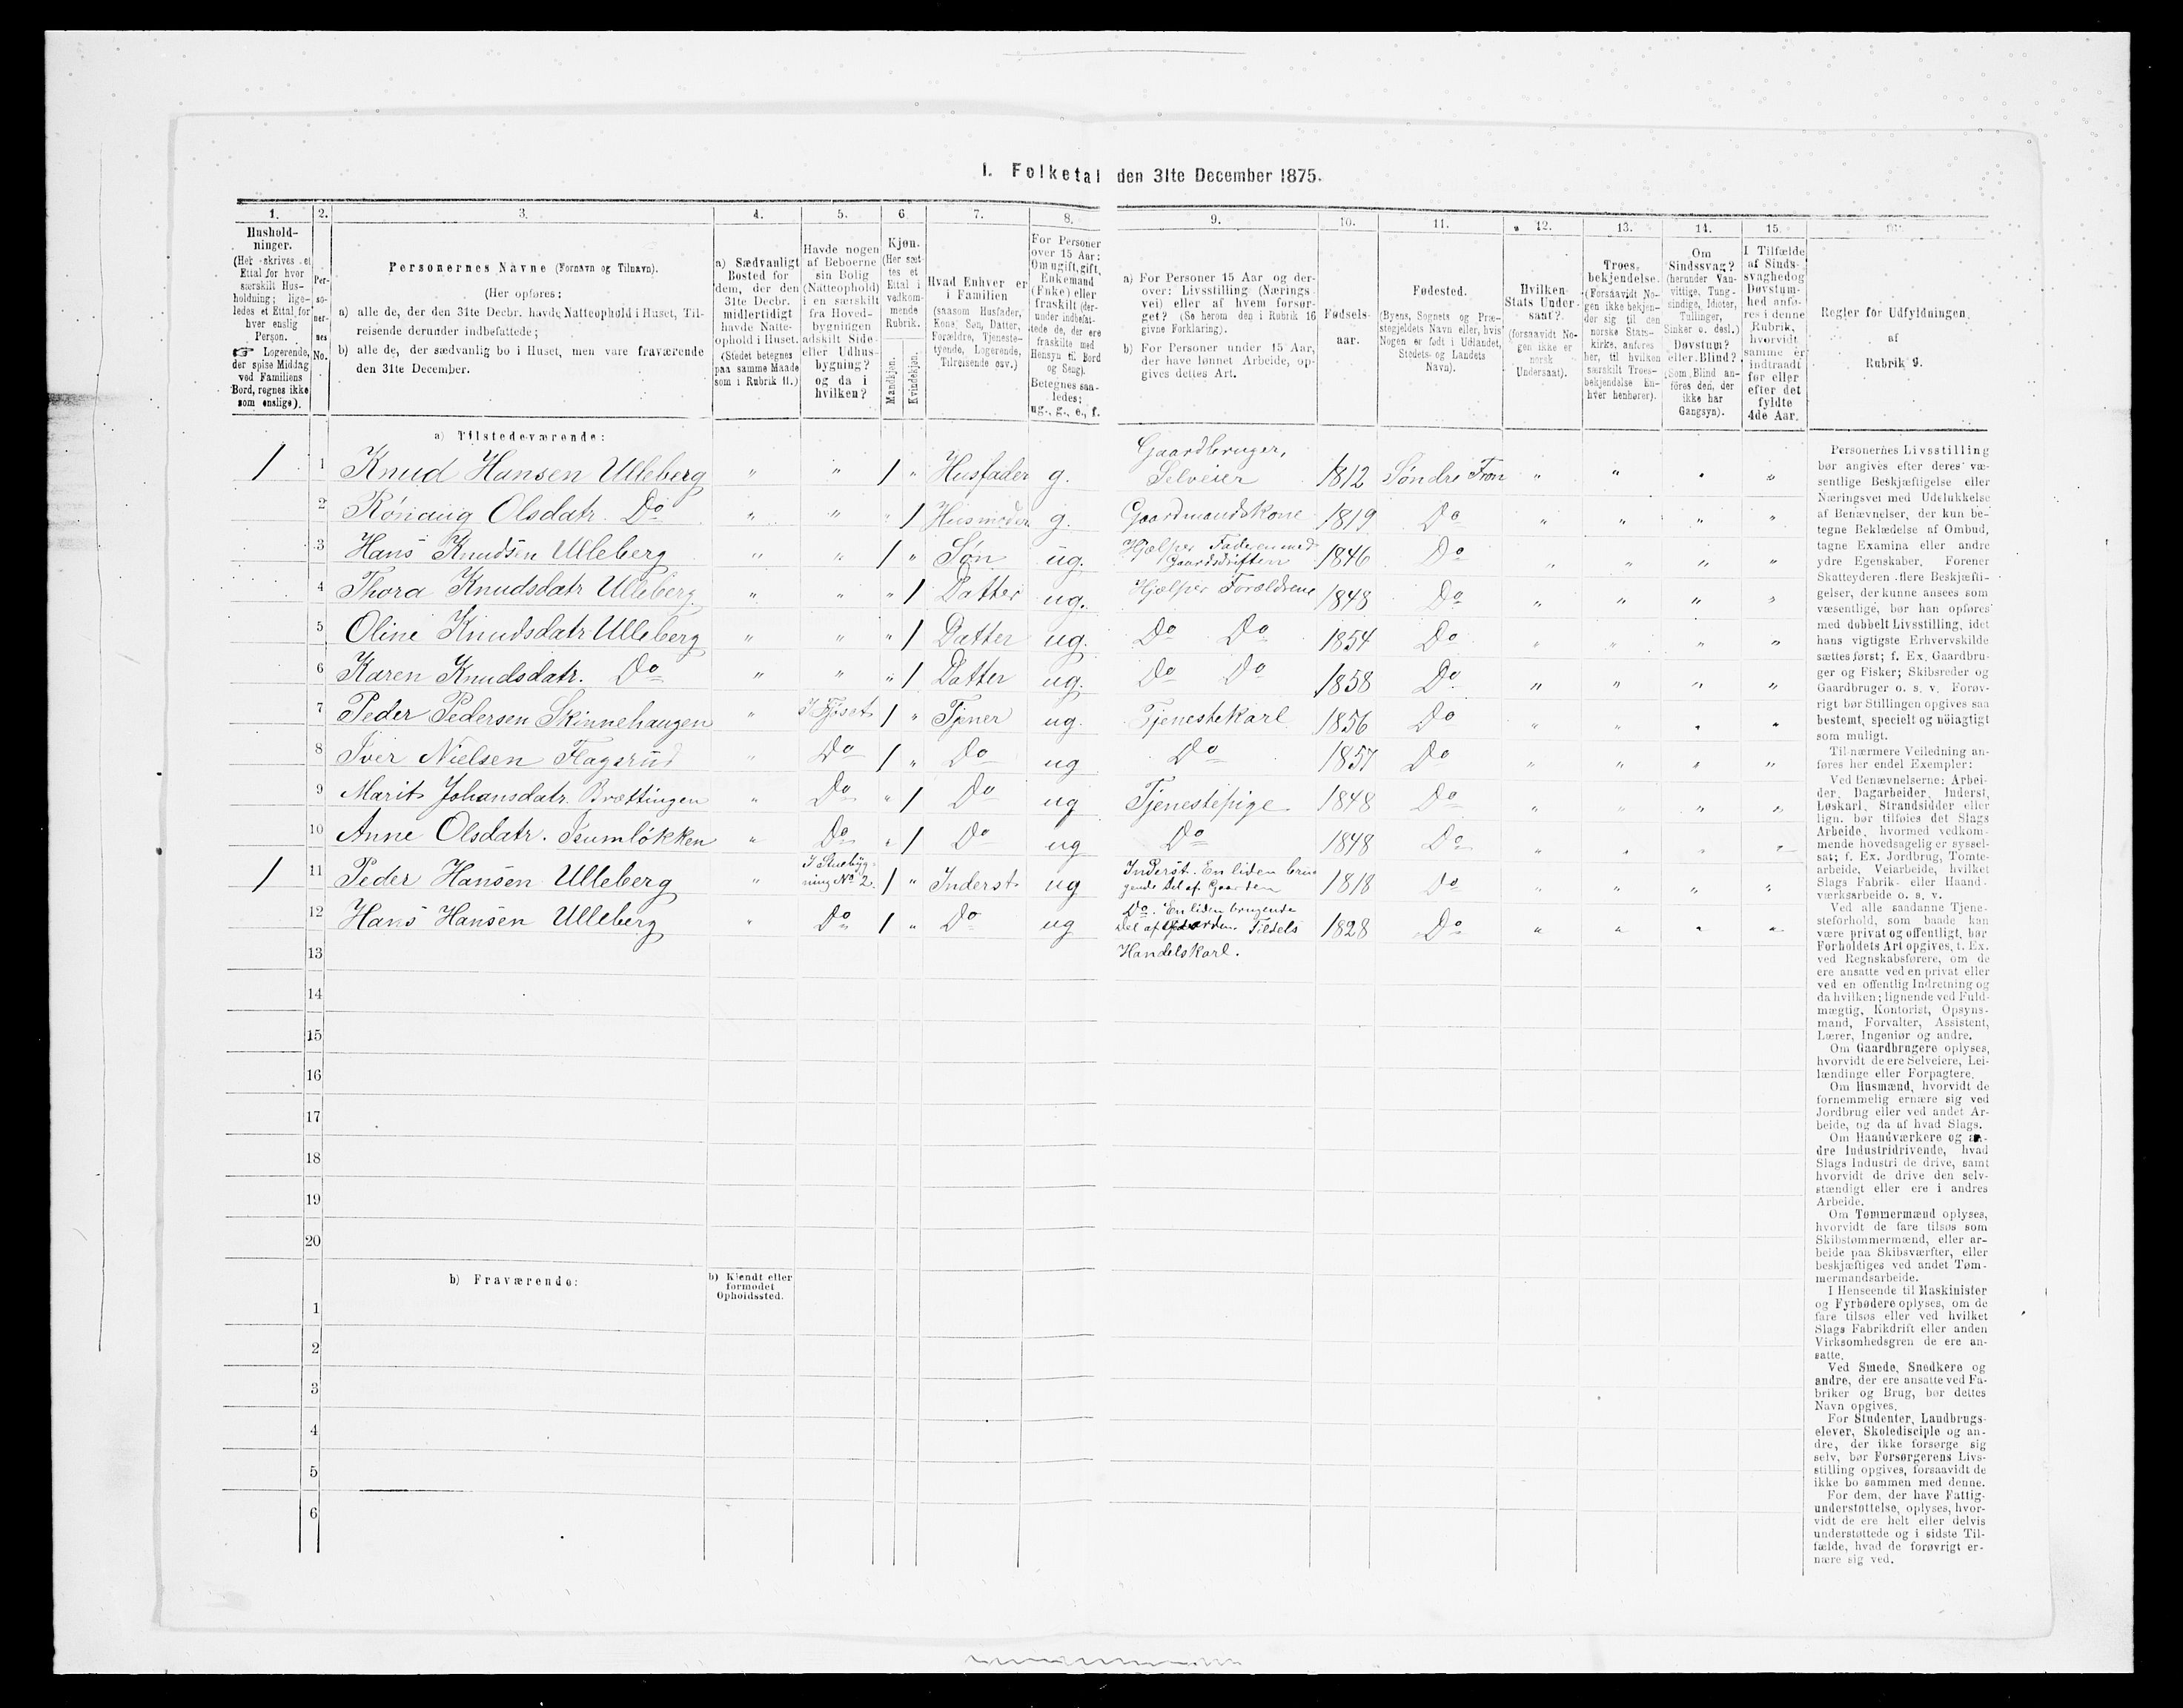 I. Folketal den 31te December 1875.
1. 2. 3. 4. 5. 6. 7. 8. 9. 10. 11. 12. 13. 14. 15. 16.
Hushold-
ninger.
(Her skrives et
Ettal for hver
særskilt Hus-
holdning; lige-
ledes et Ettal for
hver enslig
Person.
☞ Logerende,
der spise Middag
ved Familiens
Bord, regnes ikke
som enslige).
Per-
so-
ner-
nes
No.
Personernes Navne (Fornavn og Tilnavn).
(Her opføres:
a) alle de, der den 31te Decbr. havde Natteophold i Huset, Til-
reisende derunder indbefattede;
b) alle de, der sædvanlig bo i Huset, men vare fraværende
den 31te December.
a) Sædvanligt
Bosted for
dem, der den
31te Decbr.
midlertidigt
havde Natte-
ophold i Huset.
(Stedet betegnes
paa samme Maade
som i Rubrik 11.)
Havde nogen
af Beboerne
sin Bolig
(Natteophold)
i en særskilt
fra Hoved-
bygningen
adskilt Side-
eller Udhus-
bygning?
og da i
hvilken?
Kjøn.
(Her sæt-
tes et
Ettal i
vedkom-
mende
Rubrik.
Mandkjøn.
Kvindekjøn.
Hvad Enhver er
i Familien
(saasom Husfader,
Kone, Søn, Datter,
Forældre, Tjeneste-
tyende, Logerende,
Tilreisende osv.)
For Personer
over 15 Aar:
Om ugift, gift,
Enkemand
(Enke) eller
fraskilt (der-
under indbefat-
tede de, der ere
fraskilte med
Hensyn til Bord
og Seng).
Betegnes saa-
ledes:
ug., g., e., f.
a) For Personer 15 Aar og der-
over: Livsstilling (Nærings-
vei) eller af hvem forsør-
get? (Se herom den i Rubrik 16
givne Forklaring).
b) For Personer under 15 Aar,
der have lønnet Arbeide, op-
gives dettes Art.
Fødsels-
aar.
Fødested.
(Byens, Sognets og Præ-
stegjeldets Navn eller, hvis
Nogen er født i Udlandet,
Stedets og Landets
Navn).
Hvilken
Stats Under-
saat?
(forsaavidt No-
gen ikke er
norsk
Undersaat).
Troes-
bekjendelse.
(Forsaavidt No-
gen ikke bekjen-
der sig til den
norske Stats-
kirke, anføres
her, til hvilken
særskilt Troes-
bekjendelse En-
hver henhører).
Om
Sindssvag?
(herunder Van-
vittige, Tung-
sindige, Idioter,
Tullinger,
Sinker o. desl.)
Døvstum?
eller Blind?
(Som Blind an-
føres den, der
ikke har
Gangsyn).
I Tilfælde
af Sinds-
svaghed og
Døvstum-
hed anfø-
res i denne
Rubrik,
hvorvidt
samme er
indtraadt
før eller
efter det
fyldte
4de Aar.
Regler for Udfyldningen
af
Rubrik 9.
a) Tilstedeværende:
1 1 Knud Hansen Ulleberg " " 1 " Husfader g. Gaardbruger, Selveier 1812 Søndre Fron " " " "
2 Rönaug Olsdatr. Do " " " 1 Husmoder g. Gaardmandskone 1819 Do " " " "
3 Hans Knudsen Ulleberg " " 1 " Søn ug. Hjælper Faderen med Gaardsdriften 1846 Do " " " "
4 Thora Knudsdatr Ulleberg " " " 1 Datter ug. Hjælper Forældrene 1848 Do " " " "
5 Oline Knudsdatr Ulleberg " " " 1 Datter ug. Do Do 1854 Do " " " "
6 Karen Knudsdatr. Do " " " 1 Datter ug. Do Do 1858 Do " " " "
7 Peder Pedersen Skinnehaugen " I Fjöset 1 " Tjener ug. Tjenestekarl 1856 Do " " " "
8 Iver Nielsen Flagsrud " Do 1 " Do ug Do 1857 Do " " " "
9 Marit Johansdatr. Brættingen " Do " 1 Do ug Tjenestepige 1848 Do " " " "
10 Anne Olsdatr. Isumlökken " Do " 1 Do ug Do 1848 Do " " " "
1 11 Peder Hansen Ulleberg " I Stuebyg-ning No 2. 1 " Inderst ug Inderst. En liden bru-gende Del af Gaarden 1818 Do " " " "
12 Hans Hansen Ulleberg " Do 1 " Do ug Do. En liden brugende Del af Gaarden. Tildels Handelskarl. 1828 Do " " " "
13
14
15
16
17
18
19
20
b) Fraværende:
b) Kjendt eller
formodet
Opholdssted.
1
2
3
4
5
6
Personernes Livsstilling
bør angives efter deres væ-
sentlige Beskjæftigelse eller
Næringsvei med Udelukkelse
af Benævnelser, der kun be-
tegne Beklædelse af Ombud,
tagne Examina eller andre
ydre Egenskaber. Forener
Skatteyderen flere Beskjæfti-
gelser, der kunne ansees som
væsentlige, bør han opføres
med dobbelt Livsstilling, idet
hans vigtigste Erhvervskilde
sættes først; f. Ex. Gaardbru-
ger og Fisker; Skibsreder og
Gaardbruger o. s. v. Forøv-
rigt bør Stillingen opgives saa
bestemt, specielt og nøiagtigt
som muligt.
Til nærmere Veiledning an-
føres her endel Exempler:
Ved Benævnelserne: Arbei-
der, Dagarbeider, Inderst,
Løskarl, Strandsidder eller
lign. bør tilføies det Slags
Arbeide, hvormed vedkom-
mende hovedsagelig er syssel-
sat; f. Ex. Jordbrug, Tomte-
arbeide, Veiarbeide, hvilket
Slags Fabrik- eller Haand-
værksarbeide o. s. v.
Ved alle saadanne Tjene-
steforhold, som baade kan
være privat og offentligt, bør
Forholdets Art opgives, t. Ex.
ved Regnskabsførere, om de
ere ansatte ved en privat eller
ved en offentlig Indretning og
da hvilken; lignende ved Fuld-
mægtig, Kontorist, Opsyns-
mand, Forvalter, Assistent,
Lærer, Ingeniør og andre.
Om Gaardbrugere oplyses,
hvorvidt de ere Selveiere, Lei-
lændinge eller Forpagtere.
Om Husmænd, hvorvidt de
fornemmelig ernære sig ved
Jordbrug eller ved andet Ar-
beide, og da af hvad Slags.
Om Haandværkere og an-
dre Industridrivende, hvad
Slags Industri de drive, samt
hvorvidt de drive den selv-
stændigt eller ere i andres
Arbeide.
Om Tømmermænd oplyses,
hvorvidt de fare tilsøs som
Skibstømmermænd, eller ar-
beide paa Skibsværfter, eller
beskjæftiges ved andet Tøm-
mermandsarbeide.
I Henseende til Maskinister
og Fyrbødere oplyses, om de
fare tilsøs eller ved hvilket
Slags Fabrikdrift eller anden
Virksomhedsgren de ere an-
satte.
Ved Smede, Snedkere og
andre, der ere ansatte ved Fa-
briker og Brug, bør dettes
Navn opgives.
For Studenter, Landbrugs-
elever, Skoledisciple og an-
dre, der ikke forsørge sig
selv, bør Forsørgerens Livs-
stilling opgives, forsaavidt de
ikke bo sammen med denne.
For dem, der have Fattig-
understøttelse, oplyses, hvor-
vidt de ere helt eller delvis
understøttede og i sidste Til-
fælde, hvad de forøvrigt er-
nære sig ved.